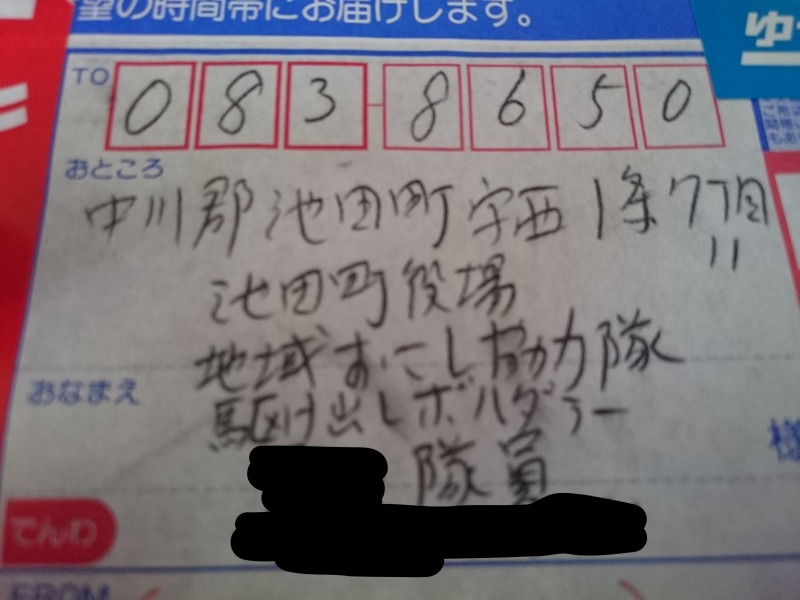 望の時間帯にお届けします。
ゆ
TO 083-8650
おところ
中川郡池田町字西1条7丁目
11
池田町役場
地域おこし協力隊
おなまえ
駆け出しボルダラー
様
隊員
でんわ
FROM